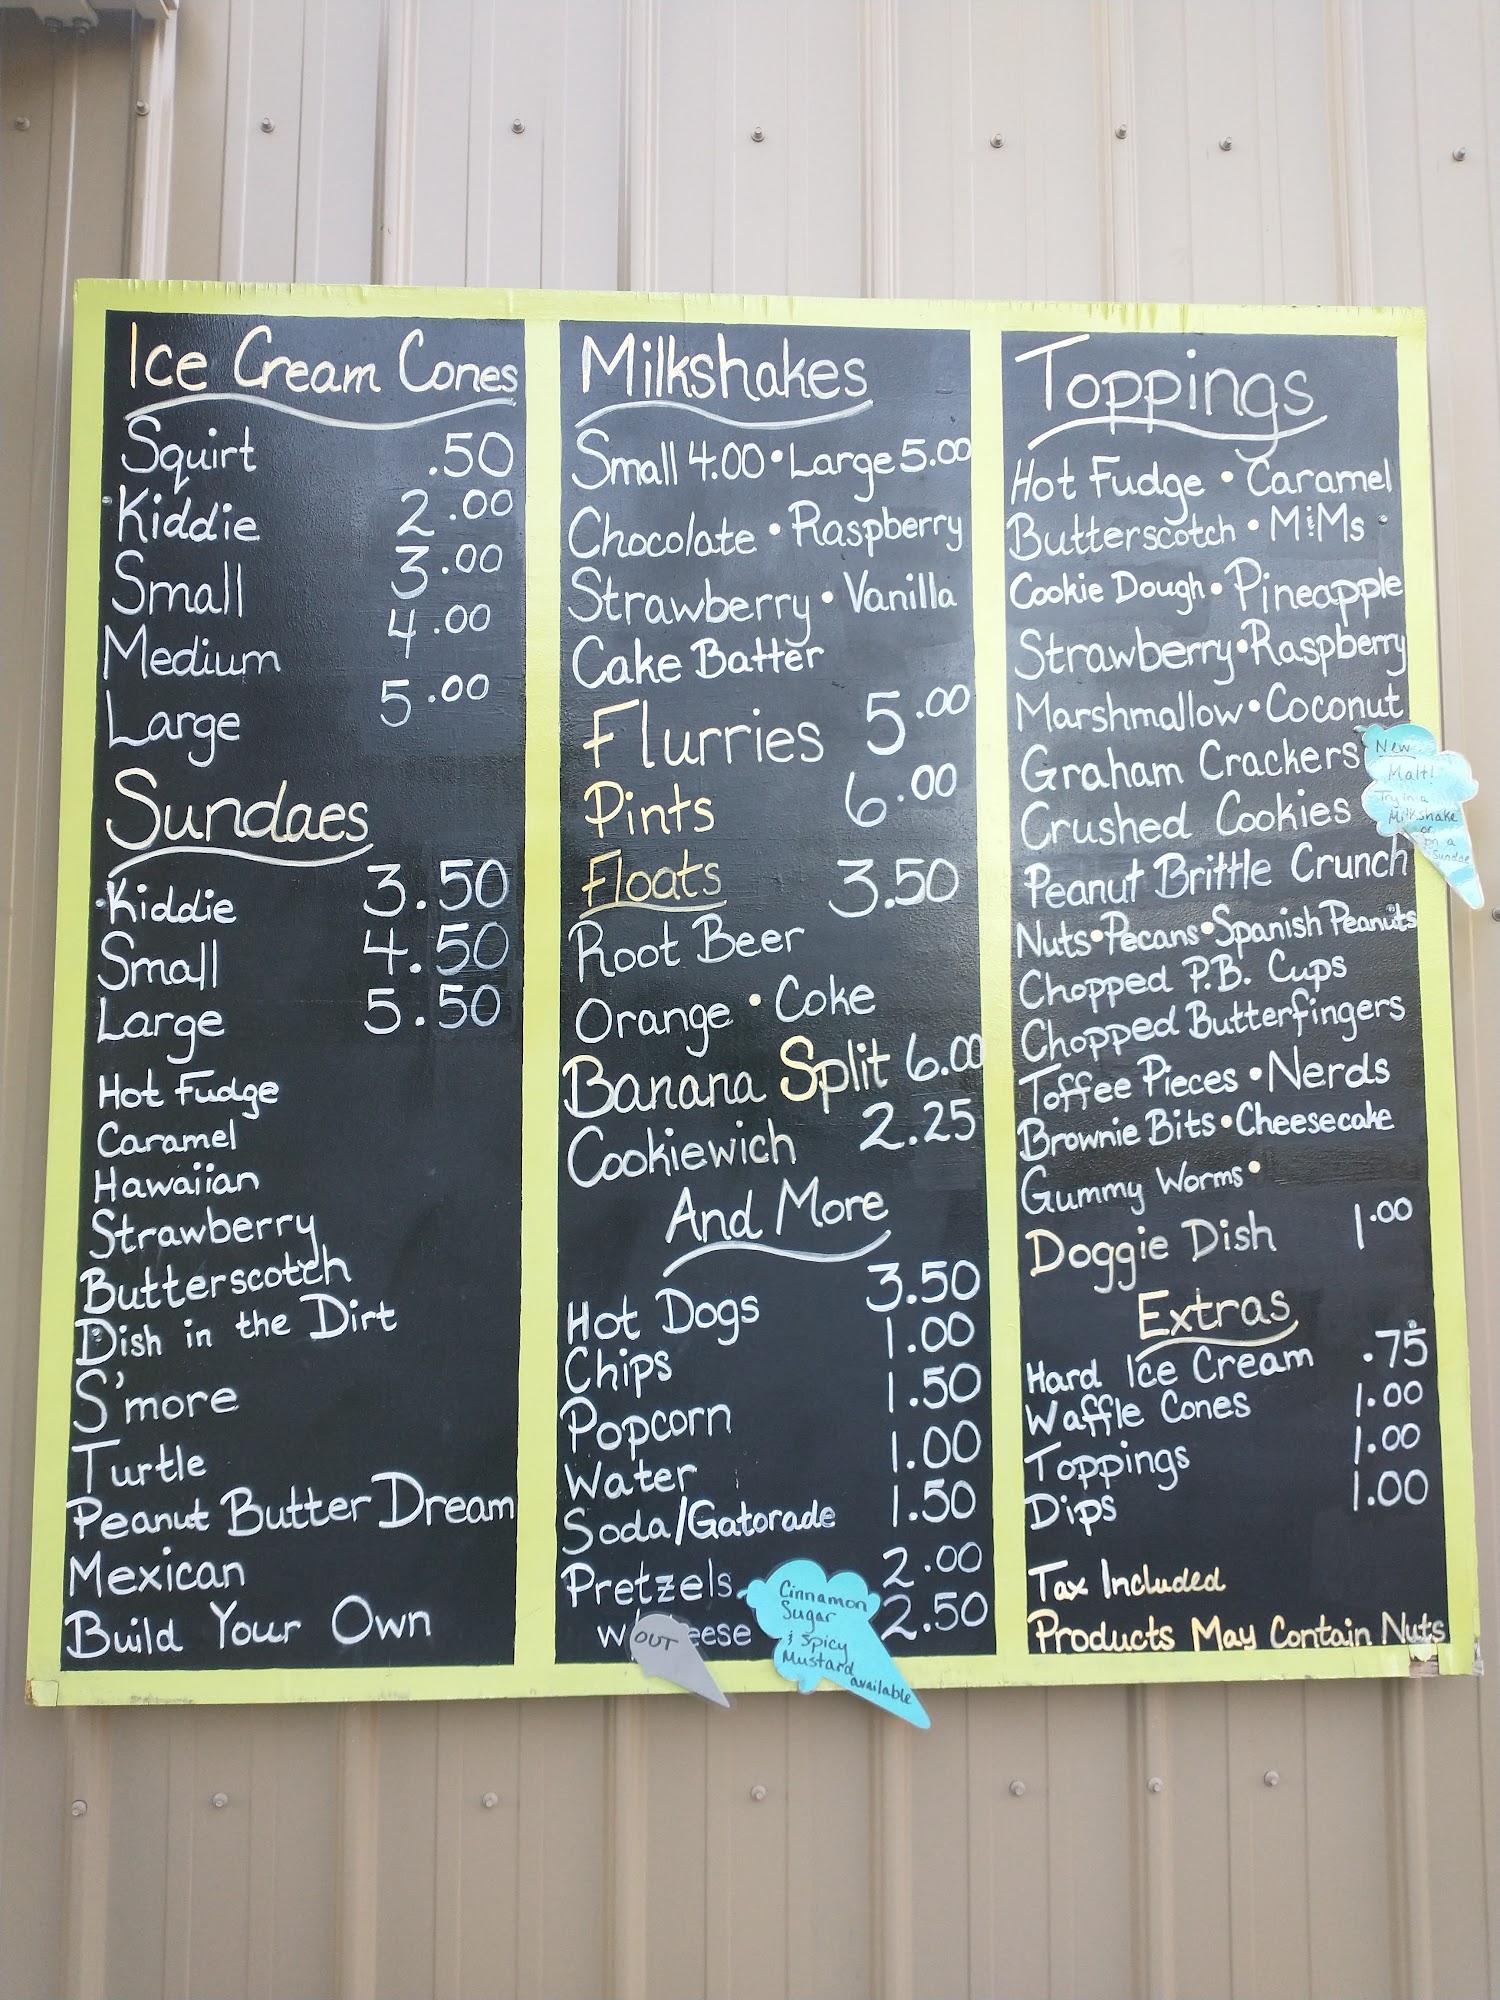 Ice Cream Cones
Squirt .50
Kiddie 2.00
Small 3.00
Medium 4.00
Large 5.00
Sundaes
Kiddie 3.50
Small 4.50
Large 5.50
Hot Fudge
Caramel
Hawaiian
Strawberry
Butterscotch
Dish in the Dirt
S'more
Turtle
Peanut Butter Dream
Mexican
Build Your Own
Milkshakes
Small 4.00 • Large 5.00
Chocolate • Raspberry
Strawberry • Vanilla
Cake Batter
Flurries 5.00
Pints 6.00
Floats 3.50
Root Beer
Orange • Coke
Banana Split 6.00
Cookiewich 2.25
And More
Hot Dogs 3.50
Chips 1.00
Popcorn 1.50
Water 1.00
Soda/Gatorade 1.50
Pretzels 2.00
2.50
OUT
Cinnamon
Sugar
& Spicy
Mustard
available
Toppings
Hot Fudge • Caramel
Butterscotch • M&Ms
Cookie Dough • Pineapple
Strawberry • Raspberry
Marshmallow • Coconut
Graham Crackers
Crushed Cookies
Peanut Brittle Crunch
Nuts • Pecans • Spanish Peanuts
Chopped P.B. Cups
Chopped Butterfingers
Toffee Pieces • Nerds
Brownie Bits • Cheesecake
Gummy Worms •
Doggie Dish 1.00
Extras
Hard Ice Cream .75
Waffle Cones 1.00
Toppings 1.00
Dips 1.00
Tax Included
Products May Contain Nuts
New
Malt!
Try in a
Milkshake
or
on a
Sundae